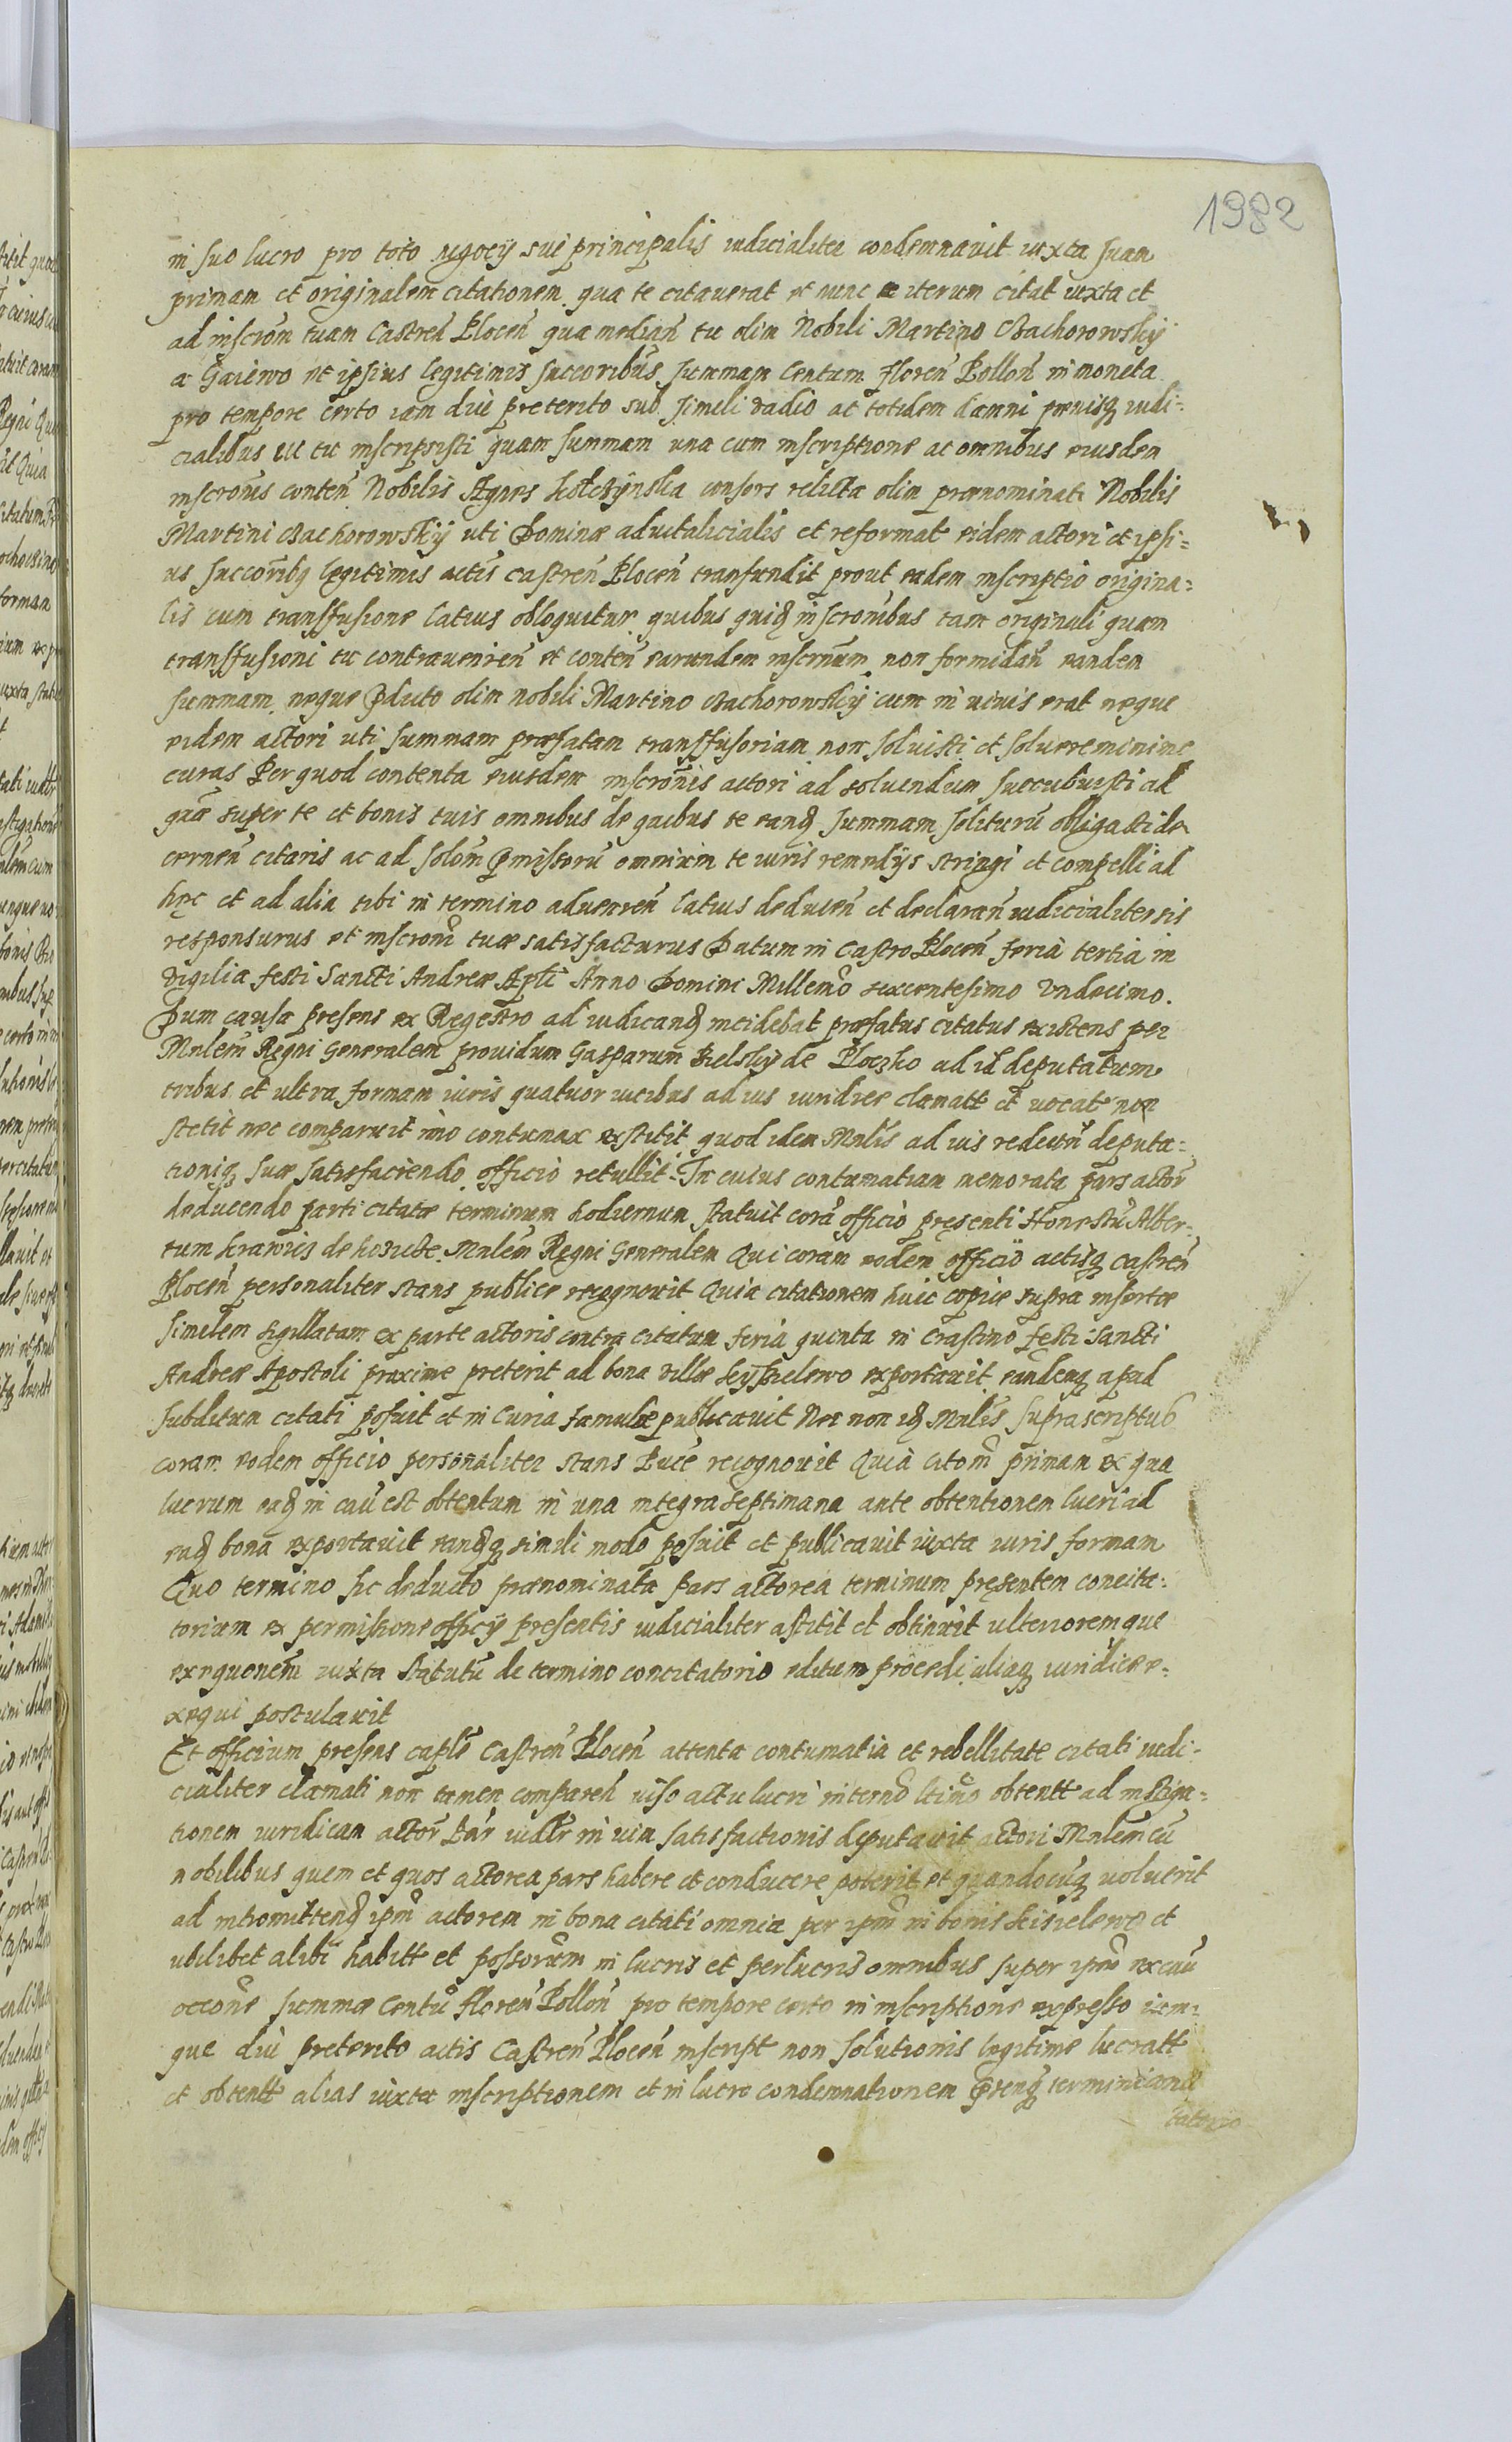 1982
in suo lucro pro toto negocij sui principalis iudicialiter condemnavit iuxta suam
primam et originalem citationem qua te citaverat et nunc iterum citat iuxta et
ad inscrom tuam Castren Plocen qua median tu olim Nobili Martino Bachorowskÿ
a Gaiewo et ipsius legitimis succoribus summam Centum floren Pollon in moneta
pro tempore certo iam diu preterito sub simili vadio ac totidem damni pœnisq iudi=
cialibus tu inscripsisti quam summam una cum inscriptione ac omnibus eiusdem
inscronis conten Nobilis Agnes consors relicta olim prænominati Nobilis
Martini Bachorowskÿ uti Domina advitalicialis et reformat eidem actori et ipsi=
us succoribq legitimis actis castren Plocen transfundit prout eadem inscriptio origina=
lis cum transfusione latius obloquitur quibus quidq inscronibus tam originali quam
transfusioni tu contravenien et conten earundem inscrnum non formidan eandem
summam neque olim nobili Martino Bachorowskÿ cum in vivis erat neque
eidem actori uti summam præfatam transfusoriam non solvisti et solvere minime
curas Per quod contenta eiusdem inscronis actori ad solvendum succubuisti ad
quæ super te et bonis tuis omnibus de quibus te eandq summam soliturū obligasti de
cernen citaris ac ad solom pmissorū omnium te iuris remedijs stringi et compelli ad
hęc et ad alia tibi in termino advenien latius deducen et declaran iudicialiter sis
responsurus et inscroni tuæ satisfacturus Datum in Castro Plocen feria tertia in
vigilia festi Sancti Andreæ Apli Anno Domini Millemo sexcentesimo Undecimo.
Dum causa presens ex Regestro ad iudicandq incidebat præfatus citatus existens per
Mnlem Regni Generalem providum Gasparum Bielskÿ de Ploczko ad id deputatum
tribus et ultra formam iuris quatuor vicibus ad ius iuridice clamatt et vocatt non
stetit nec comparuit imo contumax extitit quod idem Mnlis ad vis deputa=
tioniq suæ satisfaciendo officio retullit. In cuius contumatiam memorata pars actor
deducendo parti citatæ terminum hodiernum statuit corā officio pręsenti Honestū Alber=
tum krawiec de Mnlem Regni Generalem Qui coram eodem officio actisq castren
Plocen personaliter stans publice recognovit Quia citationem huic copiæ supra insertæ
similem sigillatam ex parte actoris contra citatum feria quinta in crastino festi Sancti
Andreæ Apostoli proxime preterit ad bona villæ exportavit eandemq apud
subditum citati posuit et in Curia famuliæ publicavit Nec non idq Mnlis suprascriptus
coram eodem officio personaliter stans Puce recognovit Quia citom primam ex qua
lucrum eadq in cau est obtentum in una integra septimana ante obtentionem lucri ad
eadq bona exportavit eandq simili modo posuit et publicavit iuxta iuris formam
Quo termino sic deducto prænominata pars actorea terminum pręsentem concita=
torium ex permissione officij presentis iudicialiter astitit et obtinuit ulterioremque
exequonem iuxta Statutū de termino concitatorio editum procedi aliaq iuridice e=
xequi postulavit
Et officium presens caple Castren Plocen attenta contumatia et rebellitate citati iudi=
cialiter clamati non tamen comparen viso actu lucri in termo obtentt ad instiga=
tionem iuridicam actor Par iudlr in vim satisfactionis deputavit actori Mnlem cū
nobilibus quem et quos actorea pars habere et conducere poterit et quandocūq voluerit
ad intromittendq ipm actorem in bona citati omnia per ipm in bonis et
ubilibet alibi habitt et possorum in lucris et perlucris omnibus super ipso ex cau
occone summæ Centū floren Pollon pro tempore certo in inscriptione expresso iam=
que diu preterito actis Castren Plocen inscript non solutionis legitime lucratt
et obtentt alias iuxta inscriptionem et in lucro condemnationem termini